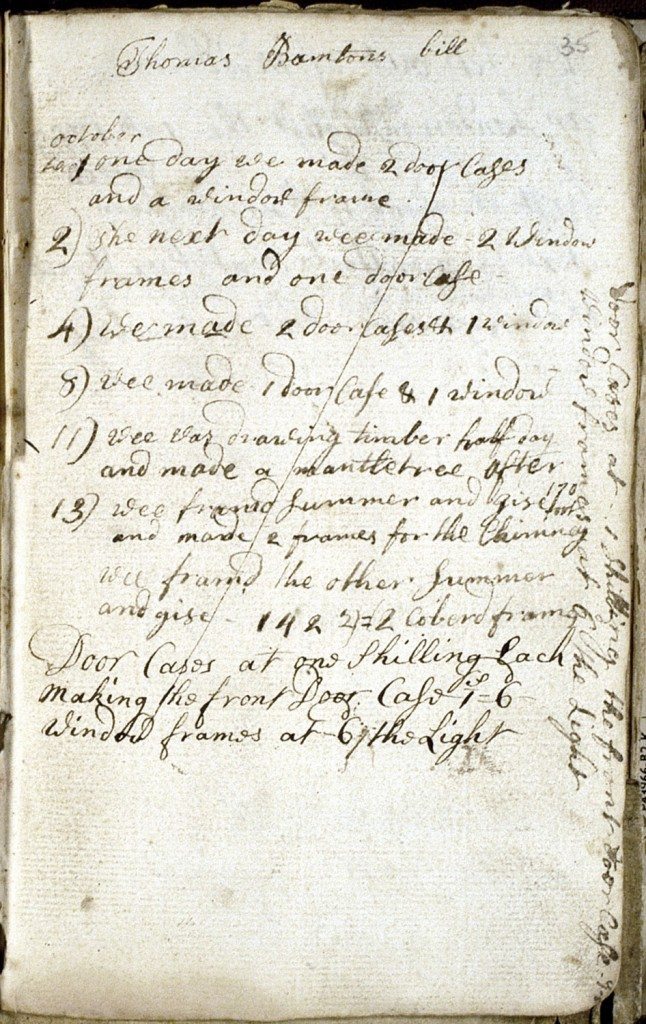 35
Thomas Bamtons bill
october
1 one day we made 2 door Cases
and a window frame
2) The next day wee made - 2 Window
frames and one door Case -
4) wee made 2 door Cases & 1 window
8) wee made 1 door Case & 1 window
11) wee was drawing timber half day
and made a mantletree After
13) wee framd Summer and gise 170 foot
and made 2 frames for the Chimney
wee framd the other Summer
and gise - 142 2)=2 Coberd frams
Door Cases at one Shilling Each
Making the front Door Case is 1=6
Window frames at 6 the Light
Door Cases at - 1 Shilling the front Door Case
Window frames at 6 the Light